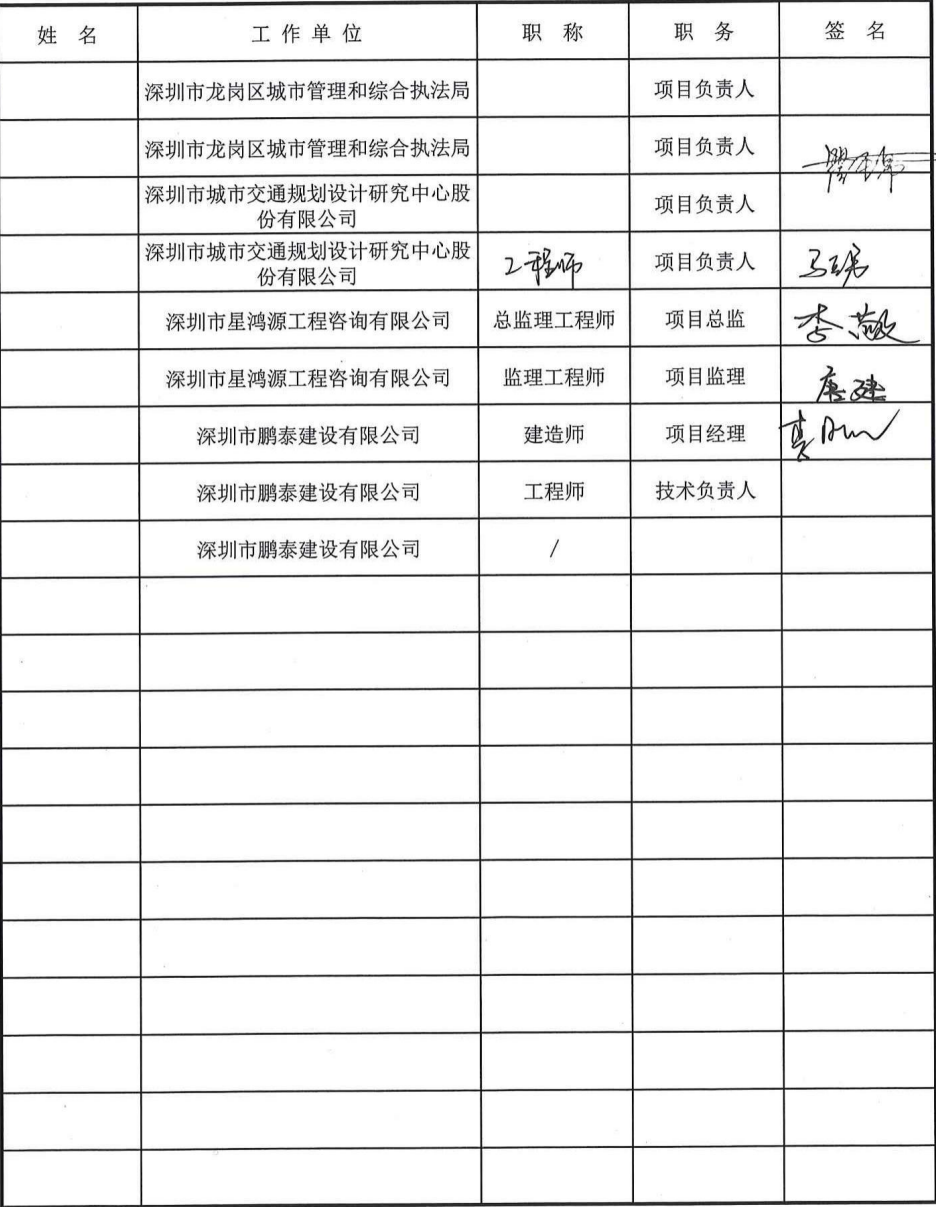 姓 名 工 作 单 位 职 称 职 务 签 名
深圳市龙岗区城市管理和综合执法局 项目负责人
深圳市龙岗区城市管理和综合执法局 项目负责人
深圳市城市交通规划设计研究中心股
份有限公司 项目负责人
深圳市城市交通规划设计研究中心股
份有限公司 工程师 项目负责人
深圳市星鸿源工程咨询有限公司 总监理工程师 项目总监 李
深圳市星鸿源工程咨询有限公司 监理工程师 项目监理 唐建
深圳市鹏泰建设有限公司 建造师 项目经理
深圳市鹏泰建设有限公司 工程师 技术负责人
深圳市鹏泰建设有限公司 /